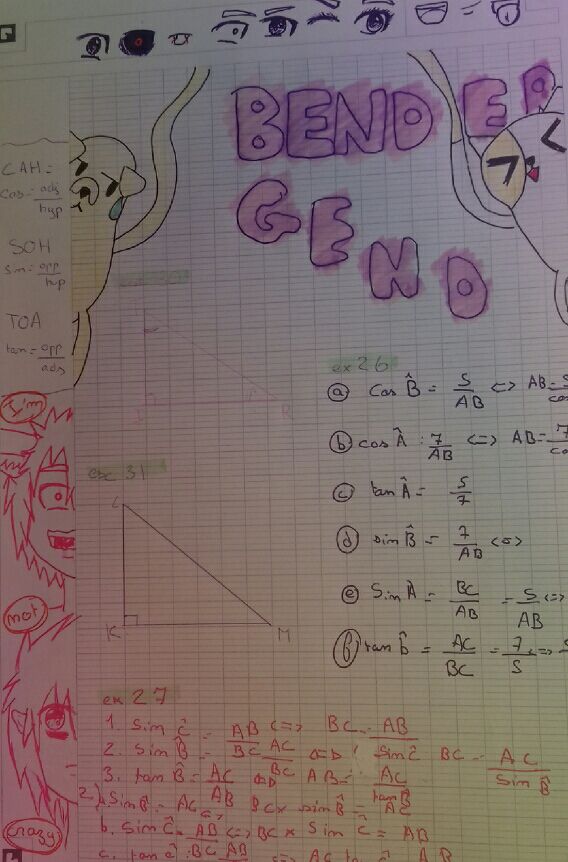 BENDER
GEND
CAH =
cos = adj/hyp
SOH
sin = opp/hyp
TOA
tan = opp/adj
I'm
not
crazy
ex 26
ⓐ cos B̂ = 5/AB <=> AB =
ⓑ cos Â : 7/AB <=> AB = 7
ⓒ tan Â = 5/7
ⓓ sin B̂ = 7/AB <=>
ⓔ Sin Â = BC/AB = 5/AB <=>
ⓕ tan b̂ = AC/BC = 7/5 <=>
exc 31
L
K
M
ex 27
1. Sin ĉ = AB/BC <=> BC = AB/Sin ĉ
2. Sin B̂ = AC/BC <=> BC = AC/Sin B̂
3. tan B̂ = AC/AB <=> AB = AC/tan B̂
2) Sin B̂ = AC <=> BC × sin B̂ = AC
b. Sin Ĉ = AB/BC <=> BC × Sin Ĉ = AB
c. tan ĉ